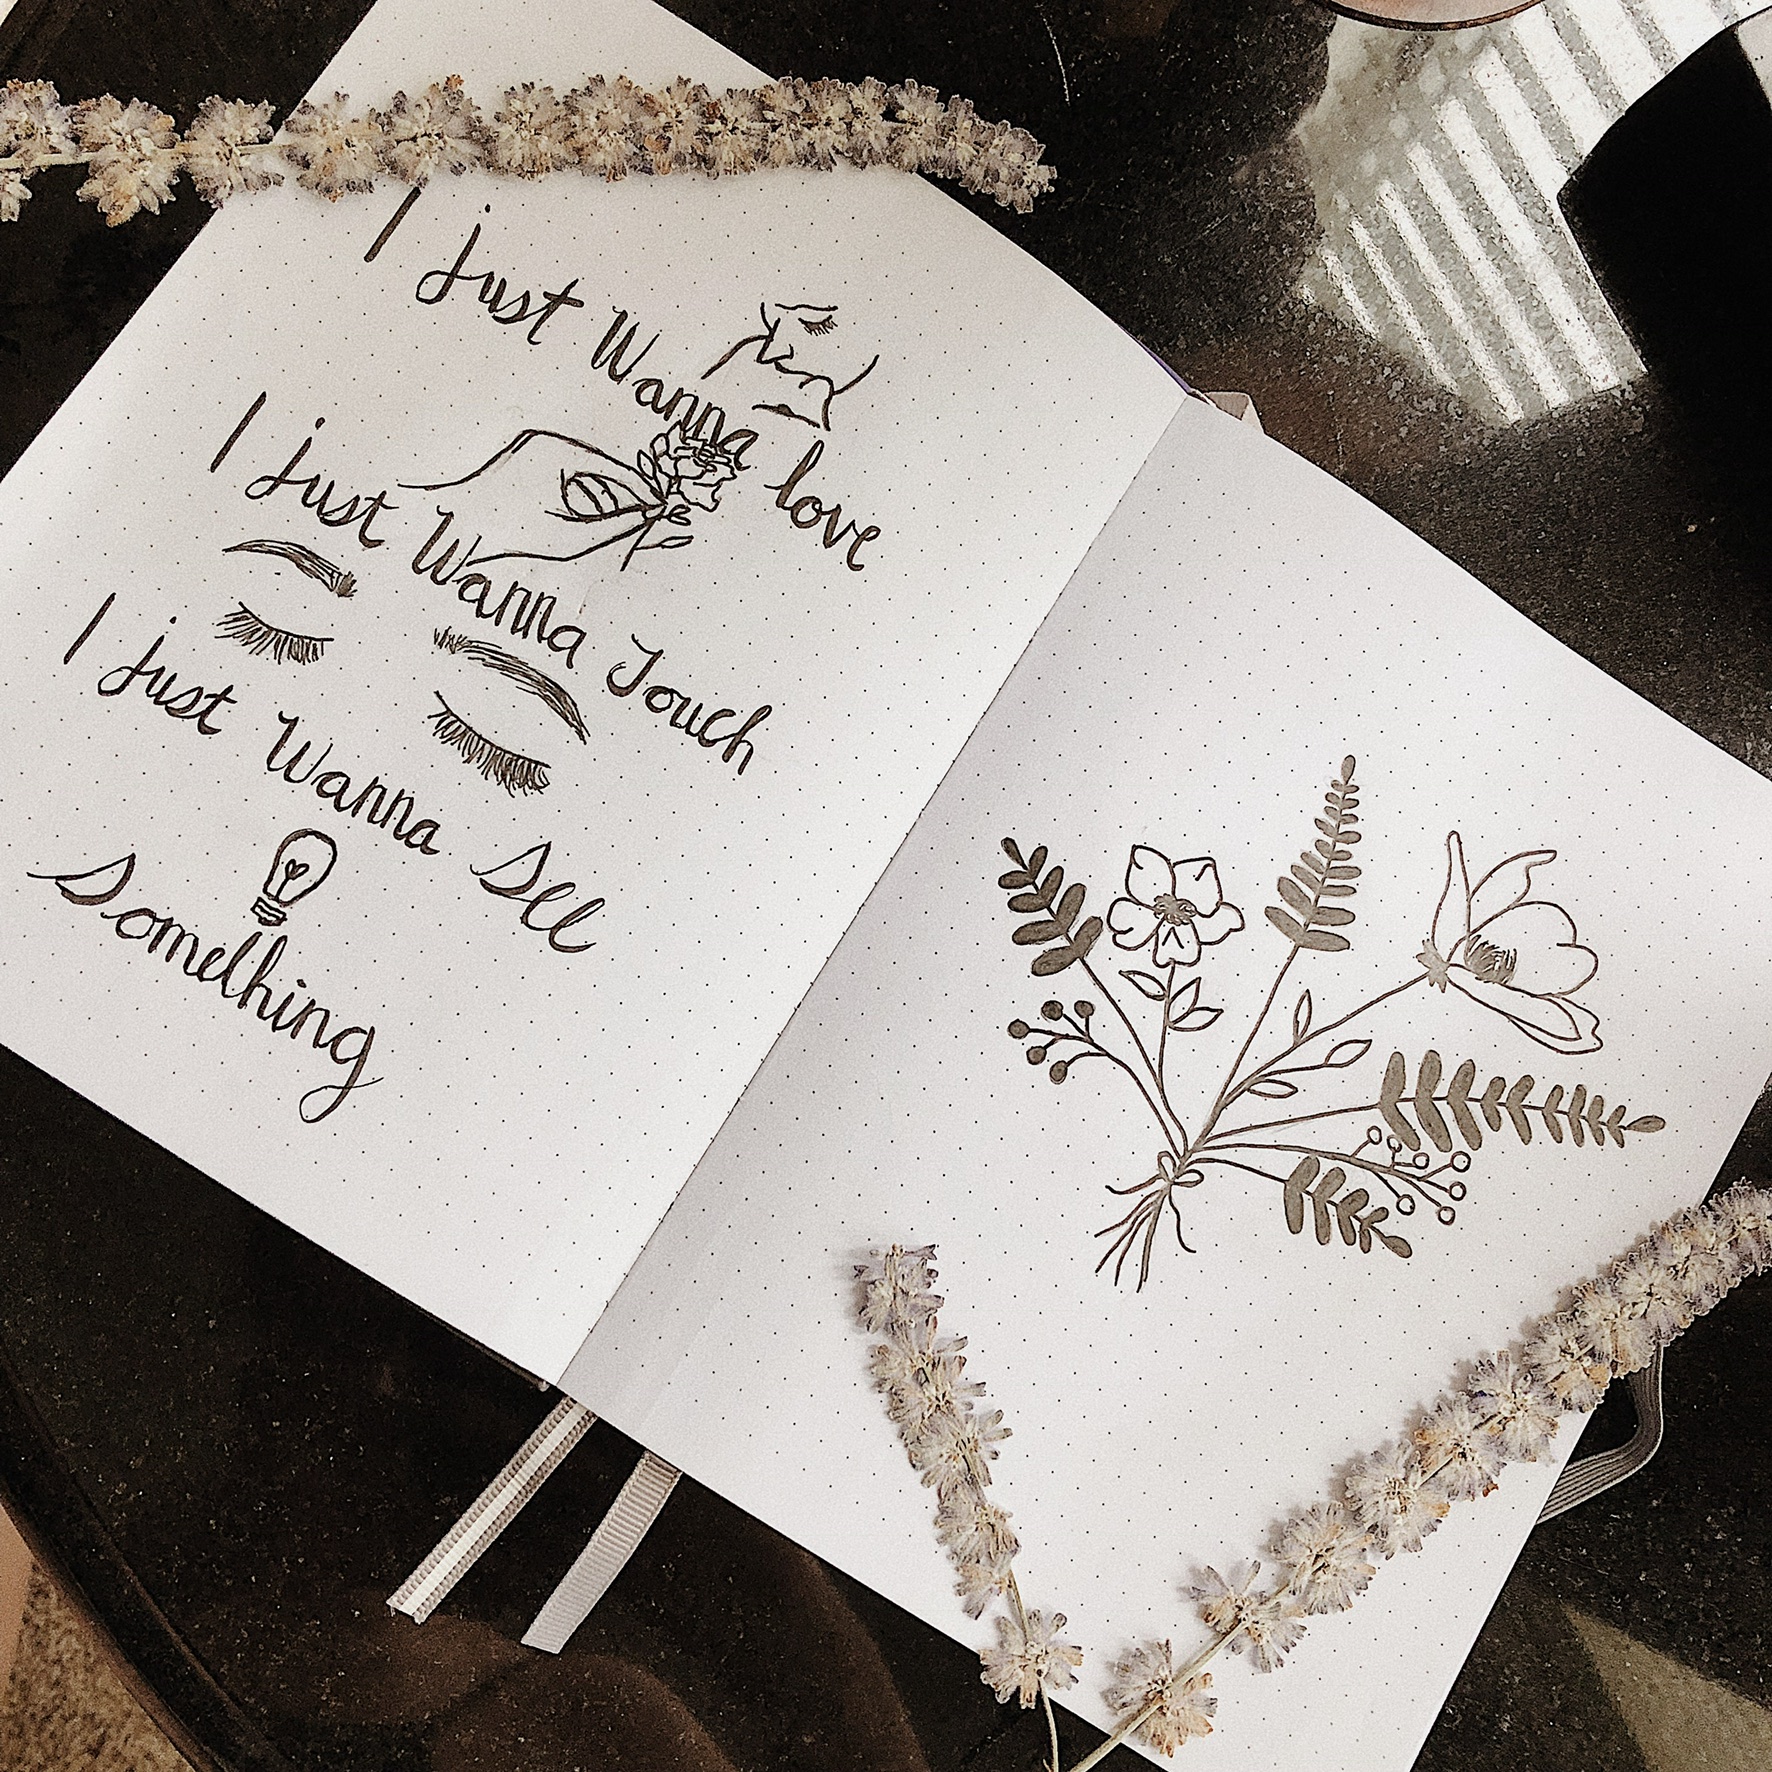 I just Wanna love
I just Wanna Touch
I just Wanna See
Something